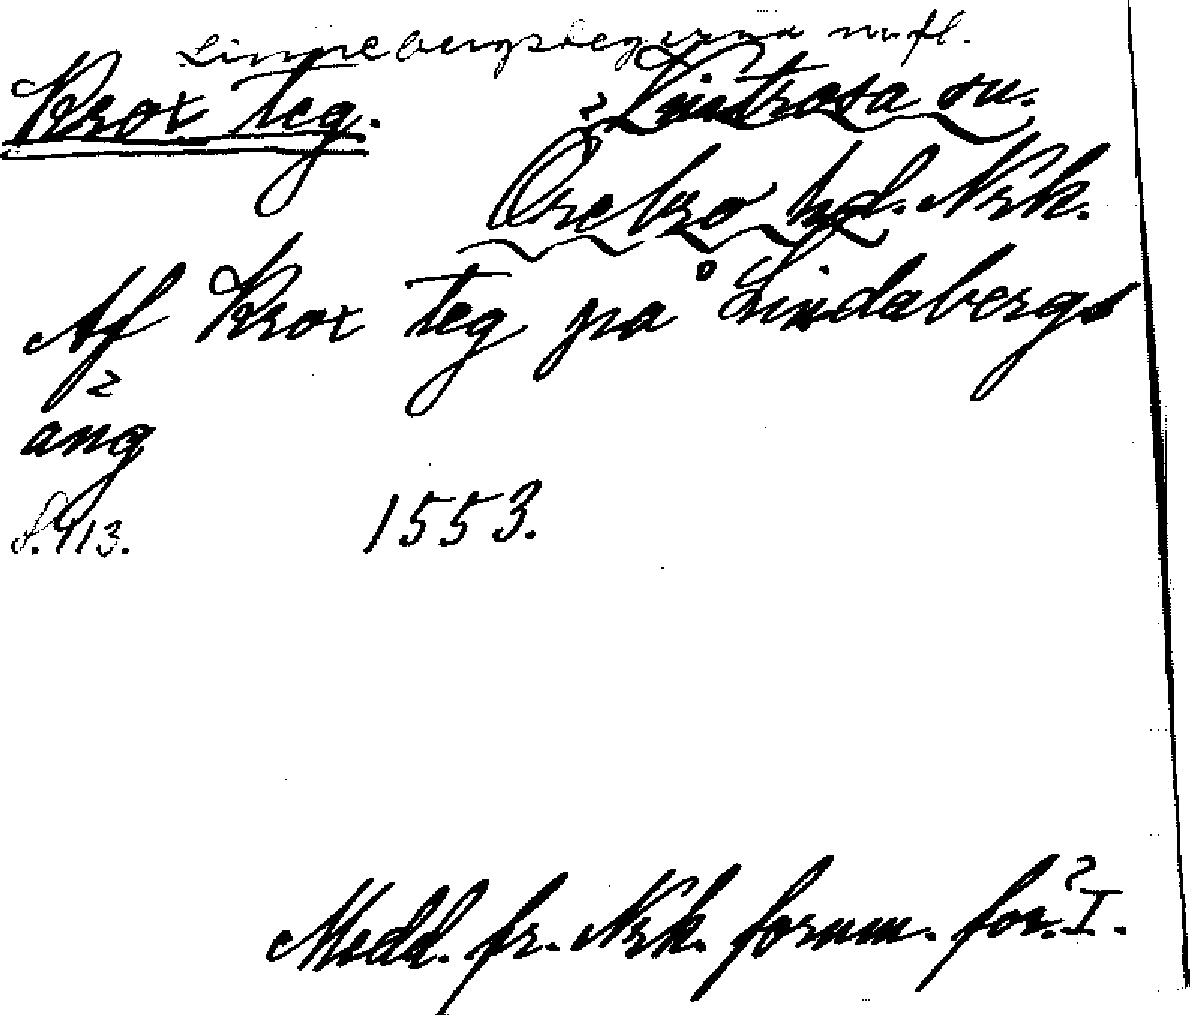 Linnebergstegarna m fl.
Krox teg. Kvistrosa sn.
Örebro hd. Nrk.
Af Krox teg på Lindabergs
äng
s. 113. 1553.
Medd. fr. Nrk. fornm. för. I.